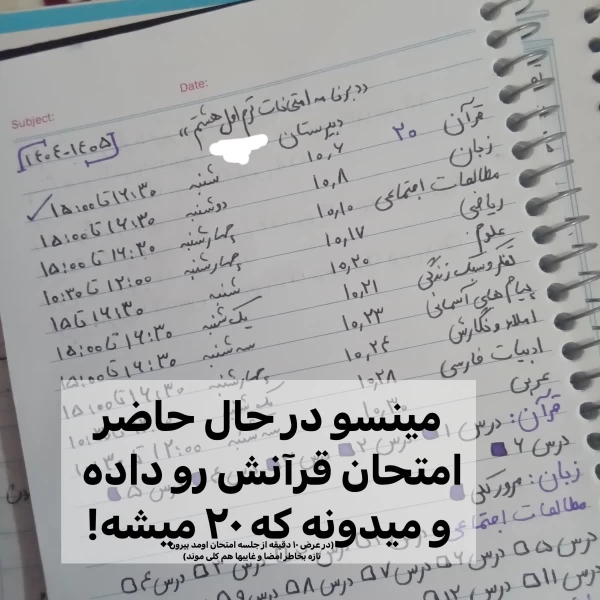 Date:
Subject:
«برنامه امتحانات ترم اول هشتم»
دبیرستان
۱۴۰۴-۱۴۰۵
قرآن ۲۰ ۱۰,۶ شنبه ۱۵:۰۰ تا ۱۶:۳۰
زبان ۱۰,۸ دوشنبه ۱۵:۰۰ تا ۱۶:۳۰
مطالعات اجتماعی ۱۰,۱۰ چهارشنبه ۱۵:۰۰ تا ۱۶:۳۰
ریاضی ۱۰,۱۷ چهارشنبه ۱۰:۳۰ تا ۱۲:۰۰
علوم ۱۰,۲۰ شنبه ۱۵ تا ۱۶:۳۰
تفکر و سبک زندگی ۱۰,۲۱ یک‌شنبه ۱۵:۰۰ تا ۱۶:۳۰
پیام های آسمانی ۱۰,۲۳ سه شنبه ۱۵:۰۰ تا ۱۶:۳۰
املا و نگارش ۱۰,۲۴ چهارشنبه ۱۵:۰۰ تا ۱۶:۳۰
ادبیات فارسی ۱۰,۲۸
عربی
مینسو در حال حاضر
امتحان قرآنش رو داده
و میدونه که ۲۰ میشه!
(در عرض ۱۰ دقیقه از جلسه امتحان اومد بیرون
تازه بخاطر امضا و غایبها هم کلی موند)
قرآن: درس ۱
درس ۶
زبان: مرور کلی
مطالعات اجتماعی
درس ۵ درس ۶ درس ۷ درس ۸
درس ۱۱ درس ۱۲